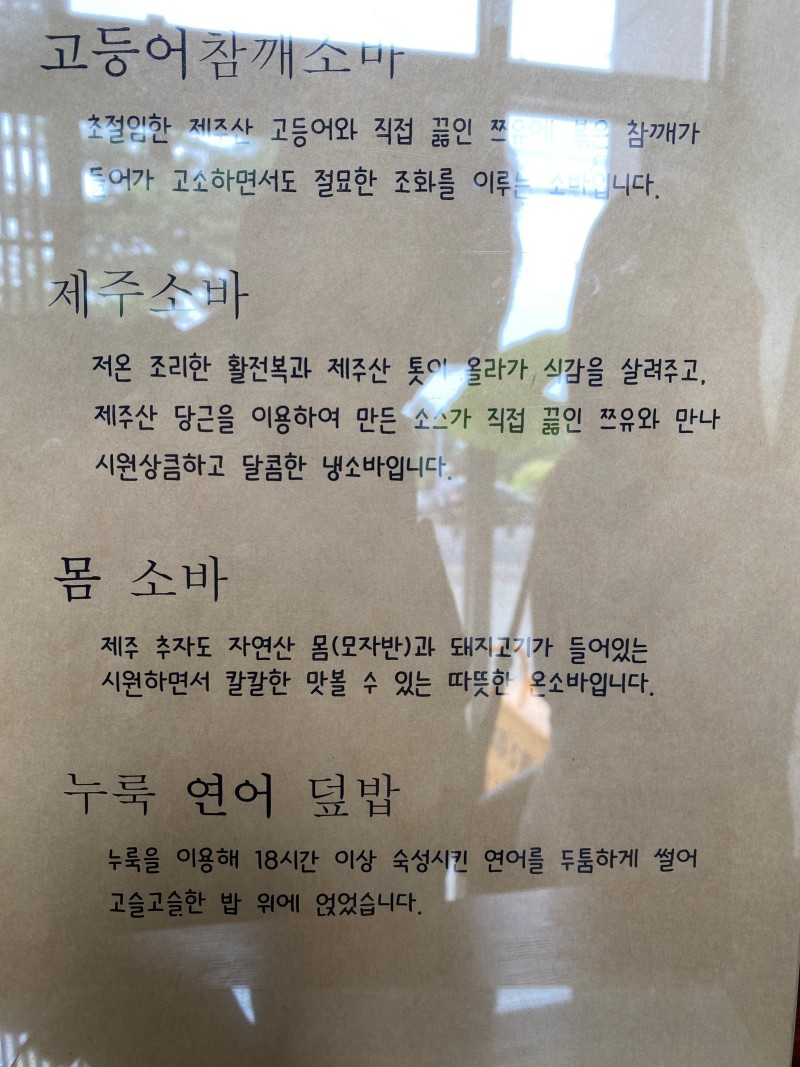 고등어참깨소바
초절임한 제주산 고등어와 직접 끓인 쯔유에 볶은 참깨가
들어가 고소하면서도 절묘한 조화를 이루는 소바입니다.
제주소바
저온 조리한 활전복과 제주산 톳이 올라가 식감을 살려주고,
제주산 당근을 이용하여 만든 소스가 직접 끓인 쯔유와 만나
시원상큼하고 달콤한 냉소바입니다.
몸 소바
제주 추자도 자연산 몸(모자반)과 돼지고기가 들어있는
시원하면서 칼칼한 맛볼 수 있는 따뜻한 온소바입니다.
누룩 연어 덮밥
누룩을 이용해 18시간 이상 숙성시킨 연어를 두툼하게 썰어
고슬고슬한 밥 위에 얹었습니다.